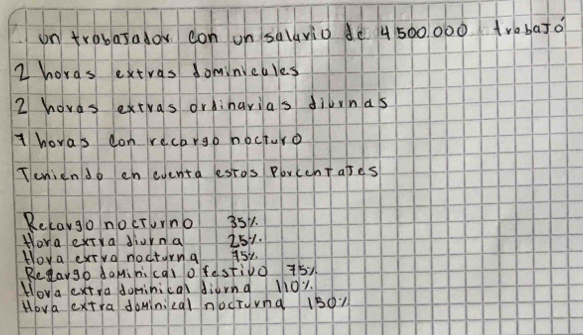 un trabaJador con un salario de 4 500.000 trabaJó
2 horas extras dominicales
2 horas extras ordinarias diurnas
7 horas con recargo nocTuro
Teniendo en cuenta esTos PorcenTaJes
Recargo nocTurno 35%.
Hora exTra diurna 25%.
Hora exTra nocturna 75%.
Recargo doMinical o fesTivo 75%.
Hora extra dominical diurna 110%.
Hora exTra doMinical nocTurna 150%